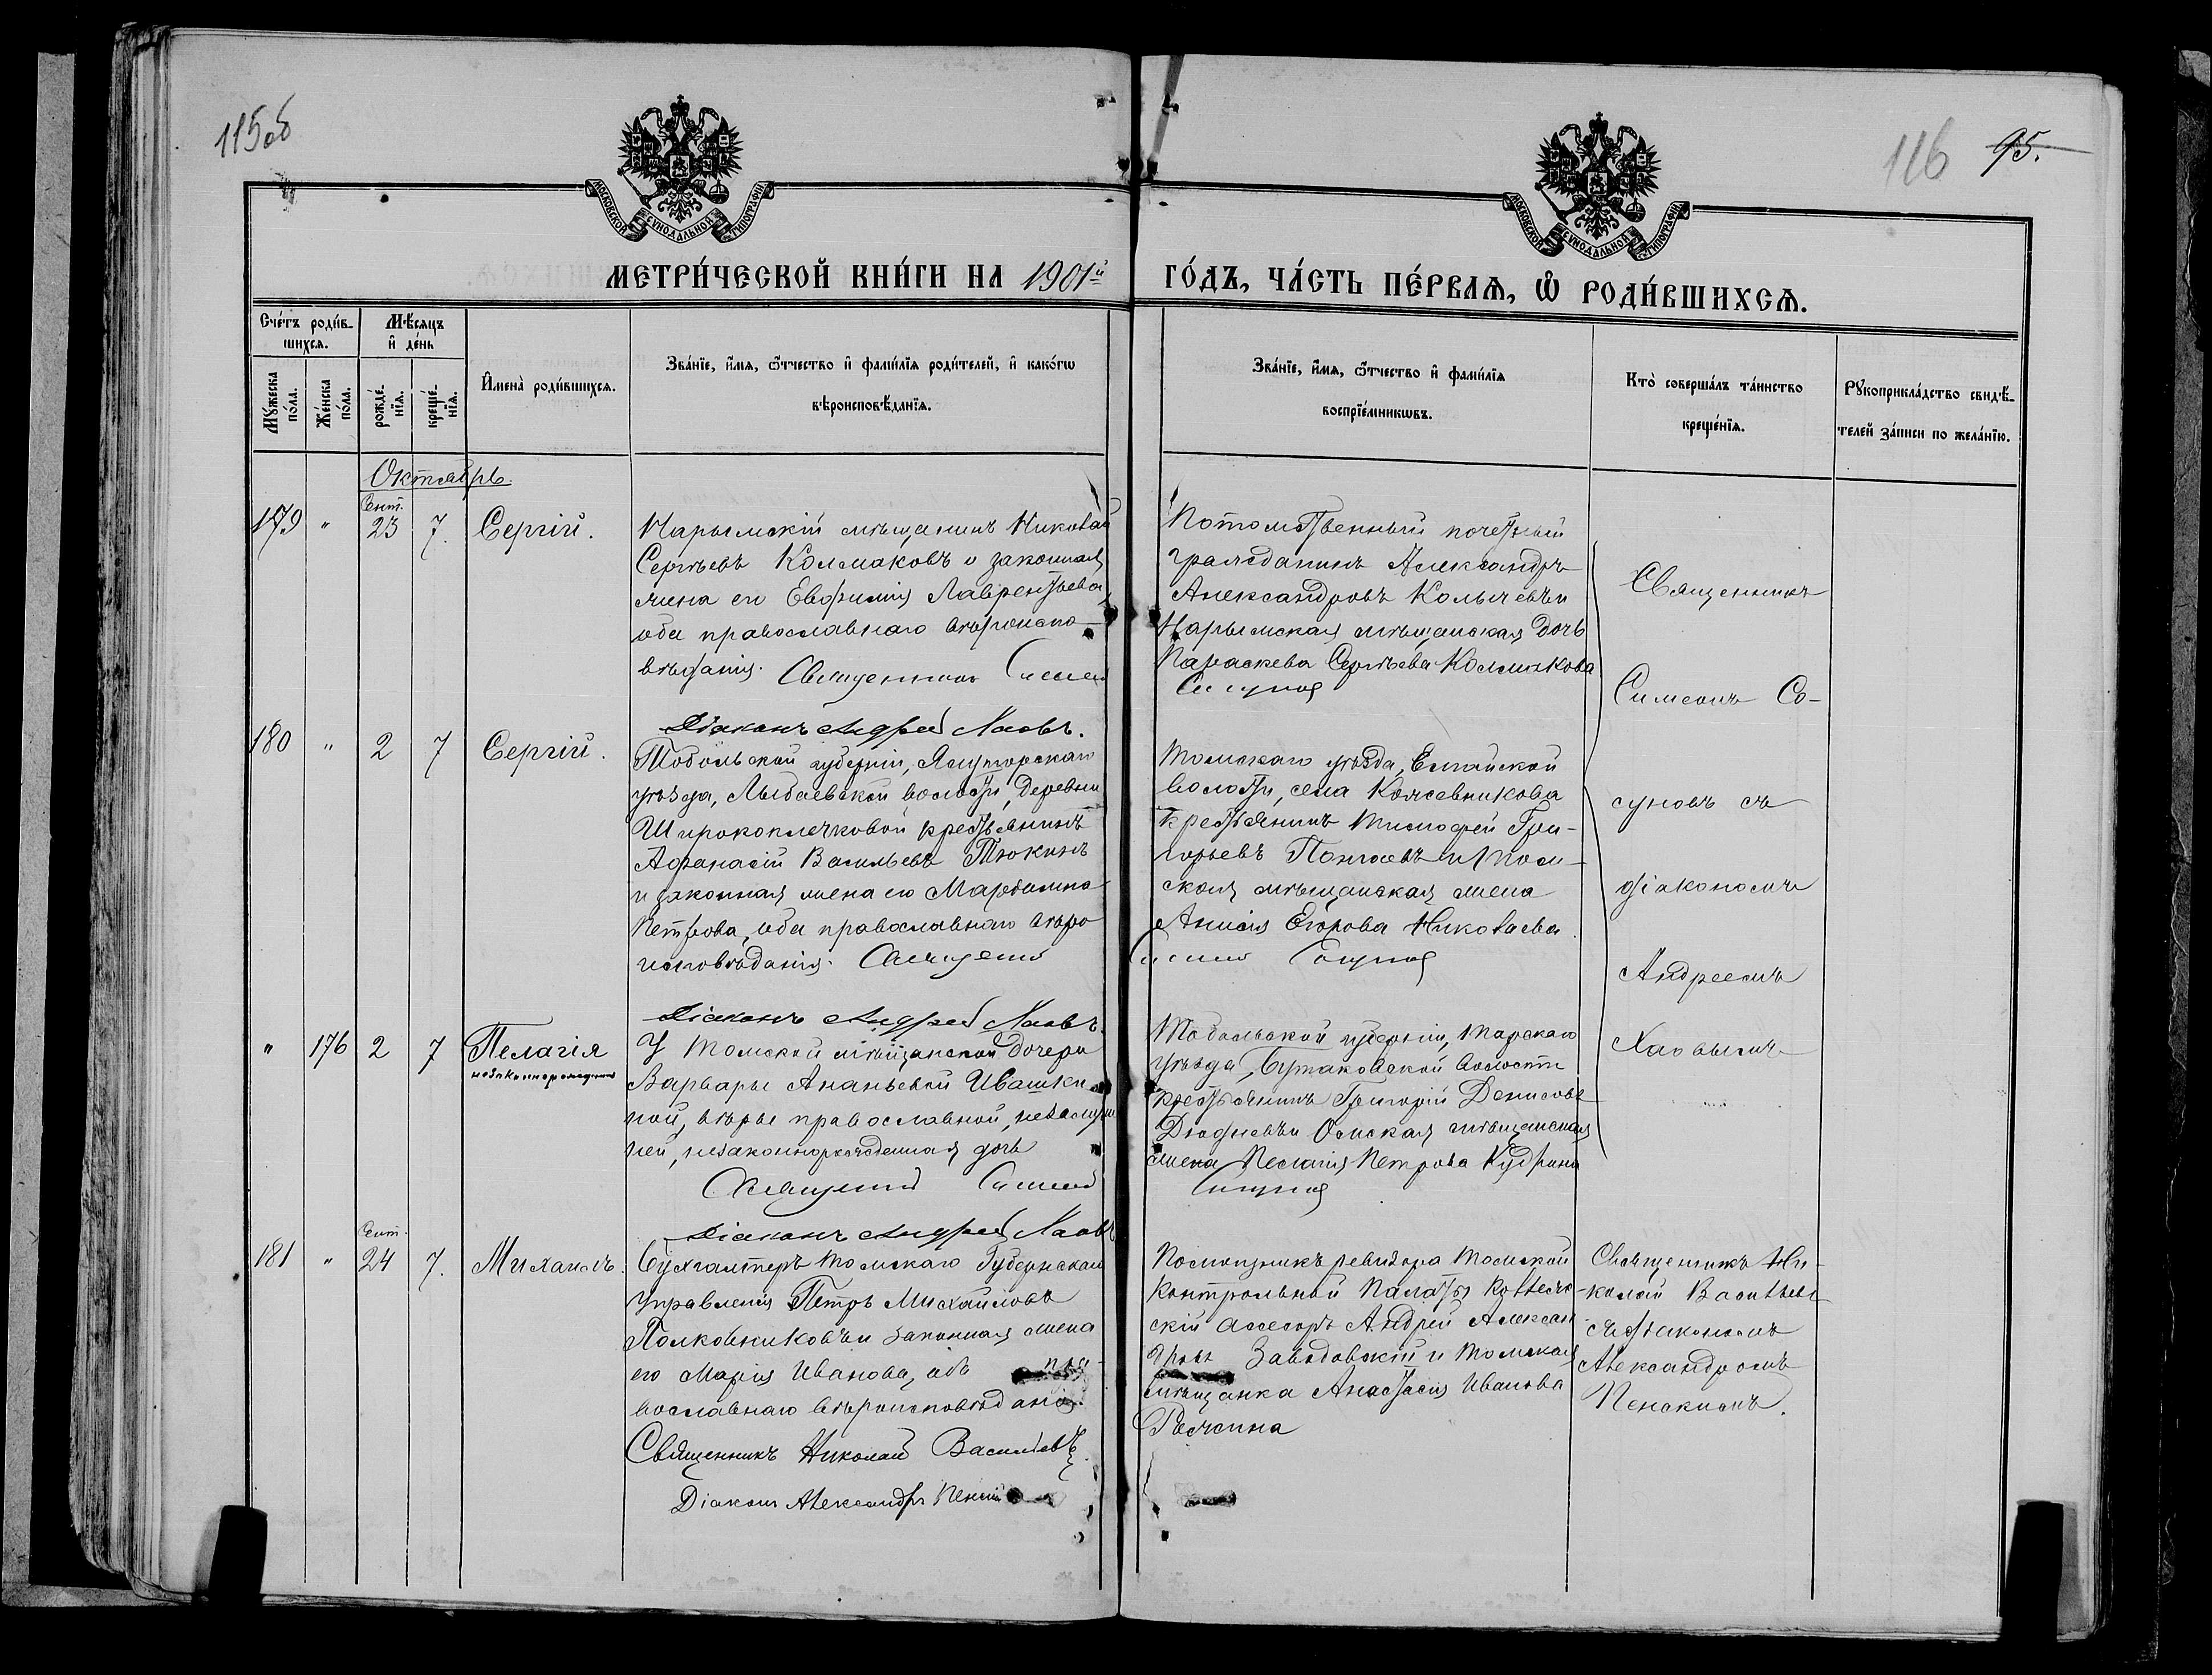 115об
116 95.
МОСКОВСКОЙ СѴНОДАЛЬНОЙ ТИПОГРАФІИ
МОСКОВСКОЙ СѴНОДАЛЬНОЙ ТИПОГРАФІИ
МЕТРИ́ЧЕСКОЙ КНИ́ГИ НА 1901й ГО́ДЪ, ЧА́СТЬ ПЕ́РВАѦ, Ѡ҆ РОДИ́ВШИХСѦ.
Сче́тъ роди́в-
шихсѧ.
Мꙋ́жеска по́ла.
Же́нска по́ла.
Мѣ́сѧцъ и҆ де́нь
рожде́-нїѧ.
креще́-нїѧ.
И҆мена̀ роди́вшихсѧ.
Зва́нїе, и҆́мѧ, ѻ҆́тчество и҆ фами́лїѧ роди́телей, и҆ како́гѡ
вѣроисповѣ́данїѧ.
Зва́нїе, и҆́мѧ, ѻ҆́тчество и҆ фами́лїѧ
воспрїе́мникѡвъ.
Кто̀ соверша́лъ та́инство
креще́нїѧ.
Рꙋкоприкла́дство свидѣ́-
телей за́писи по жела́нїю.
Октябрь.
179 " Сент. 23 7. Сергій.
Нарымскій мѣщанинъ Николай
Сергѣевъ Колмаковъ и законная
жена его Евфимія Лаврентьева,
оба православнаго вѣроиспо-
вѣданія. Священникъ Симеонъ
Діаконъ Андрей Хаовъ.
Потомственный почетный
гражданинъ Александръ
Александровъ Колычевъ и
Нарымская мѣщанская дочь
Параскева Сергѣева Колмакова
Сосуновъ
Священникъ
Симеонъ Со-
суновъ съ
діакономъ
Андреемъ
Хаовымъ
180 " 2 7 Сергій.
Тобольской губерніи, Ялуторскаго
уѣзда, Лыбаевской волости, деревни
Широкоплечковой крестьянинъ
Афанасій Васильевъ Тюкинъ
и законная жена его
Петрова, оба православнаго вѣро
исповѣданія. Священникъ
Діаконъ Андрей Хаовъ.
Томскаго уѣзда, Елгайской
волости, села Кожевникова
крестьянинъ Тимофей Гри-
горьевъ и Том-
ская мѣщанская жена
Анисія Егорова Николаева.
Симеонъ Сосуновъ
" 176 2 7 Пелагія
незаконнорожденная
У Томской мѣщанской дочери
Варвары Ананьевой Ивашки-
ной, вѣры православной, незамуж
ней, незаконнорожденная дочь
Священникъ Симеонъ
Діаконъ Андрей Хаовъ
Тобольской губерніи, Тарскаго
уѣзда, Бутаковской волости
крестьянинъ Григорій Денисовъ
Омская мѣщанская
жена Пелагія Петрова Кудрина
Сосуновъ
181 " Сент. 24 7. Михаилъ.
Бухгалтеръ Томскаго Губернскаго
Управленія Петръ Михайловъ
Полковниковъ и законная жена
его Марія Иванова, оба пра-
вославнаго вѣроисповѣданія.
Священникъ Николай Васильевъ
Діаконъ Александръ
Помощникъ ревизора Томской
Контрольной Палаты Коллеж-
скій Ассесоръ Андрей Алексан
дровъ Заводовскій и Томская
мѣщанка Анастасія Иванова
Священникъ Ни-
колай Васильевъ
съ діакономъ
Александромъ